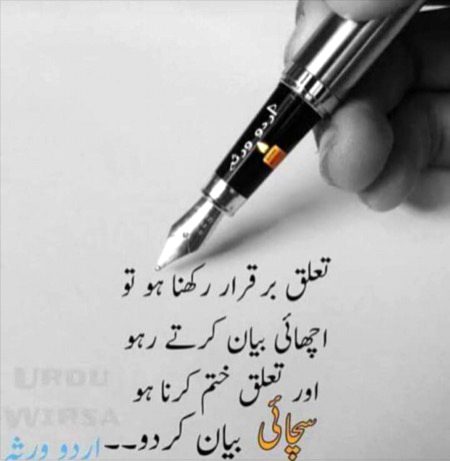 اردو ورثہ
تعلق برقرار رکھنا ہو تو
اچھائی بیان کرتے رہو
اور تعلق ختم کرنا ہو
سچائی بیان کردو۔۔
URDU
WIRSA
اردو ورثہ